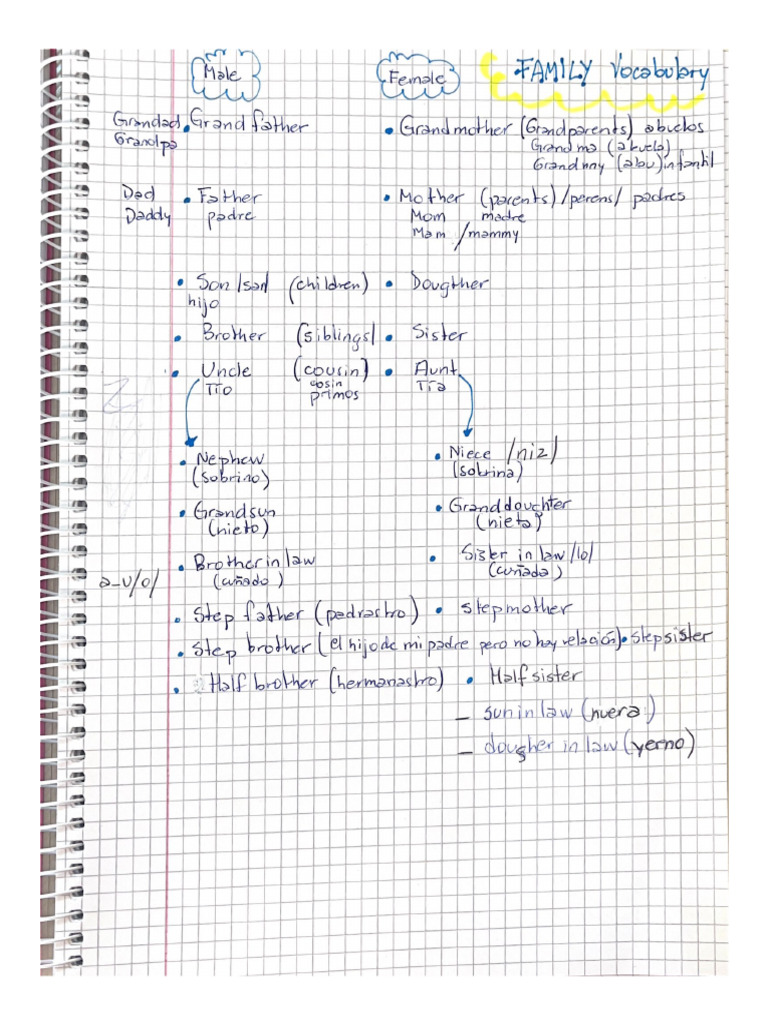 Male Female FAMILY Vocabulary
Grandad • Grand father • Grandmother (Grandparents) abuelos
Grandpa Grand ma (abuela)
Grandnny (abu) infantil
Dad • Father • Mother (parents) /perens/ padres
Daddy padre Mom madre
Mam /mammy
• Son /san (children) • Dougther
hijo
• Brother (siblings) • Sister
• Uncle (cousin) • Aunt
Tío cosin Tía
primos
• Nephew • Niece /niz/
(sobrino) (sobrina)
• Grandsun • Granddoughter
(nieto) (nieta)
• Brother in law • Sister in law /lo/
a-u/o/ (cuñado) (cuñada)
• Step father (padrastro) • stepmother
• Step brother (el hijo de mi padre pero no hay relación) • stepsister
• Half brother (hermanastro) • Half sister
– sun in law (nuera)
– dougher in law (yerno)